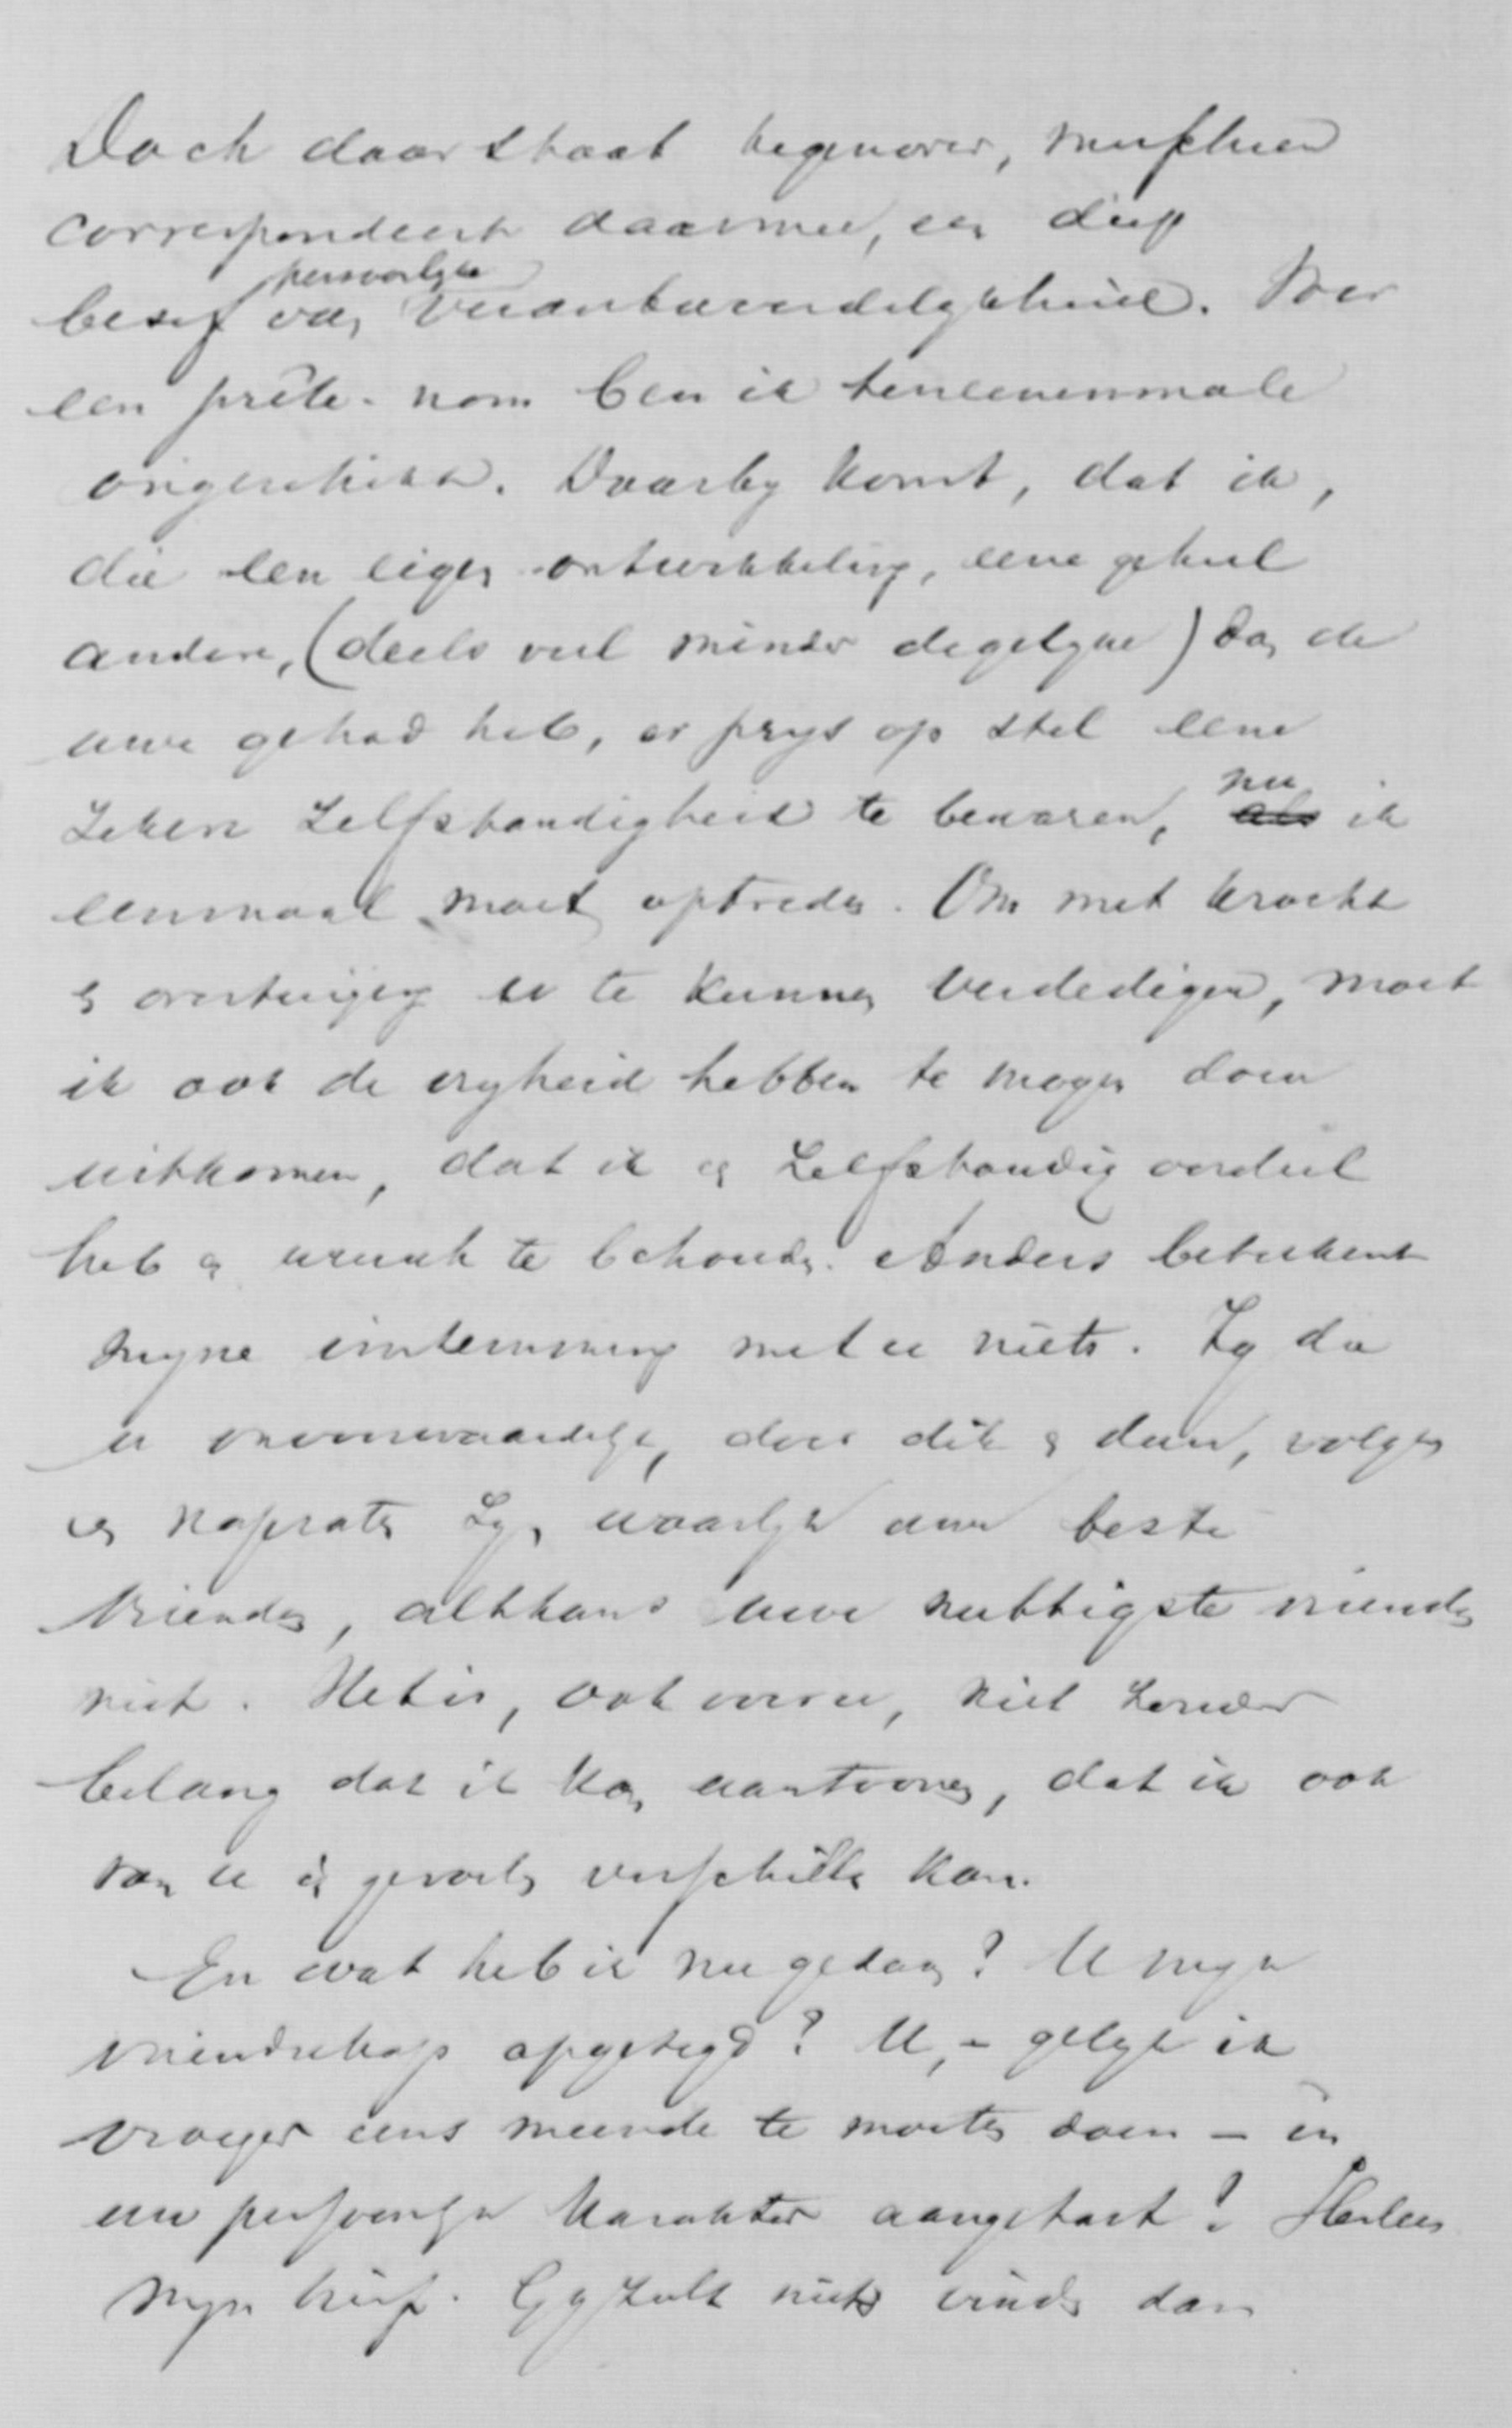 Doch daar staat tegenover, misschien
correspondeert daarmee, een diep
besef van persoonlyke verantwoordelykheid. Voor
een prête-nom ben ik teneenenmale
ongeschikt. Daarby komt, dat ik,
die een eigen ontwikkeling, eene geheel
andere, (deels veel minder degelyke) dan de
uwe gehad heb, er prys op stel eene
zekere zelfstandigheid te bewaren, nu ~~als~~ ik
eenmaal moet optreden. Om met kracht
en overtuiging u te kunnen verdedigen, moet
ik ook de vryheid hebben te mogen doen
uitkomen, dat ik een zelfstandig oordeel
heb en wensch te behouden. Anders beteekent
myne instemming met u niets. Zy die
u onvoorwaardelyk, door dik en dun, volgen
en napraten zyn waarlyk uwe beste
vrienden, althans uwe nuttigste vrienden
niet. Het is, ook voor u, niet zonder
belang dat ik kan aantoonen, dat ik ook
van u in gevoelen verschillen kan.
En wat heb ik nu gedaan? U myn
vriendschap opgezegd? U, - gelyk ik
vroeger eens meende te moeten doen - in
uw persoonlyk karakter aangetast? Herlees
myn brief. Gy zult niets vinden dan